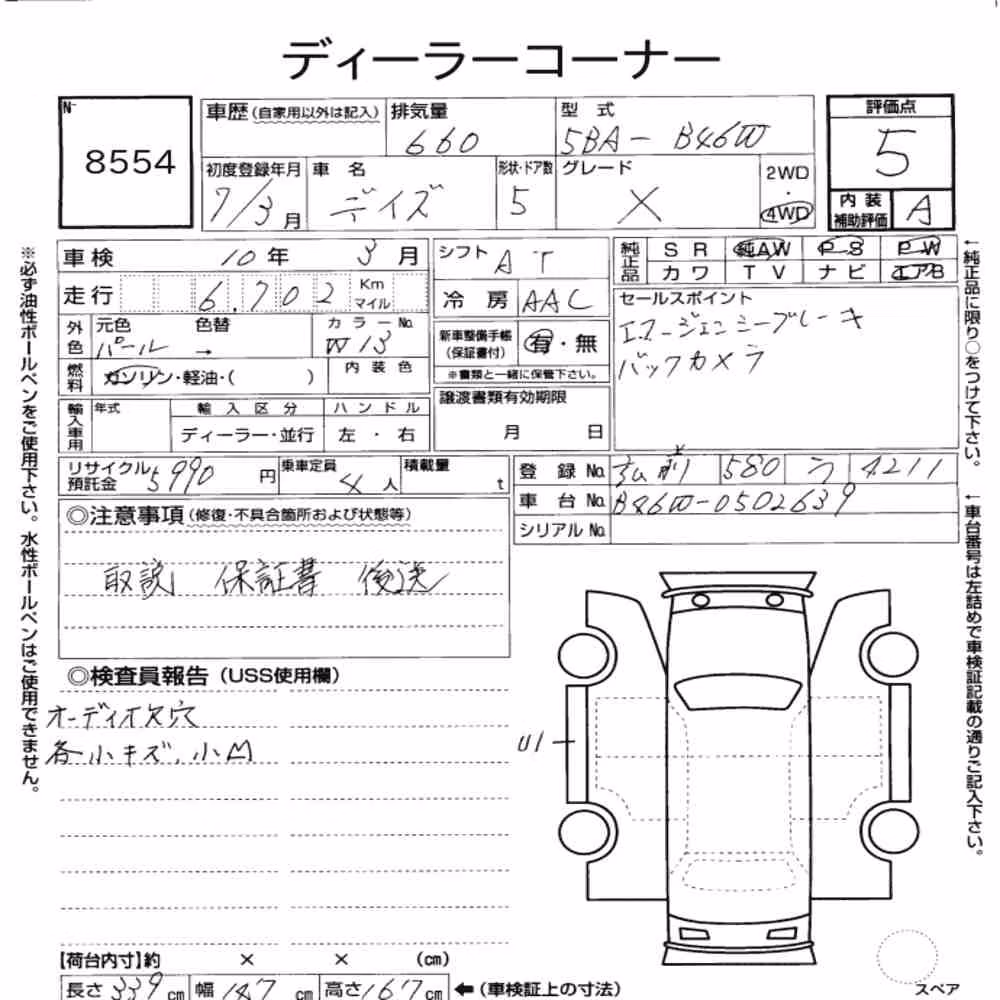 ディーラーコーナー
No 8554
車歴(自家用以外は記入) 排気量 660 型式 5BA-B46W
初度登録年月 7/3月 車名 デイズ 形状・ドア数 5 グレード X 2WD・4WD
評価点 5
内装補助評価 A
車検 10年 3月 シフト AT
走行 6,702 Km マイル 冷房 AAC
外色 元色 パール 色替 → カラーNo. W13
燃料 ガソリン・軽油・( ) 内装色
新車整備手帳(保証書付) 有・無
※書類と一緒に保管下さい。
輸入車用 年式 輸入区分 ディーラー・並行 ハンドル 左・右
譲渡書類有効期限 月 日
純正品 SR 純AW PS PW
カワ TV ナビ エアB
セールスポイント
エマージェンシーブレーキ
バックカメラ
リサイクル預託金 5990円 乗車定員 4人 積載量 t
登録No. 580 う 4211
車台No. B46W-0502639
シリアルNo.
◎注意事項(修復・不具合箇所および状態等)
取説 保証書 後送
◎検査員報告(USS使用欄)
オーディオ欠穴
各小キズ、小凹
U1
【荷台内寸】約 × × (cm)
長さ 339cm 幅 147cm 高さ 167cm ←(車検証上の寸法)
スペア
※必ず油性ボールペンをご使用下さい。水性ボールペンはご使用できません。
←純正品に限り○をつけて下さい。
←車台番号は左詰めで車検証記載の通りご記入下さい。